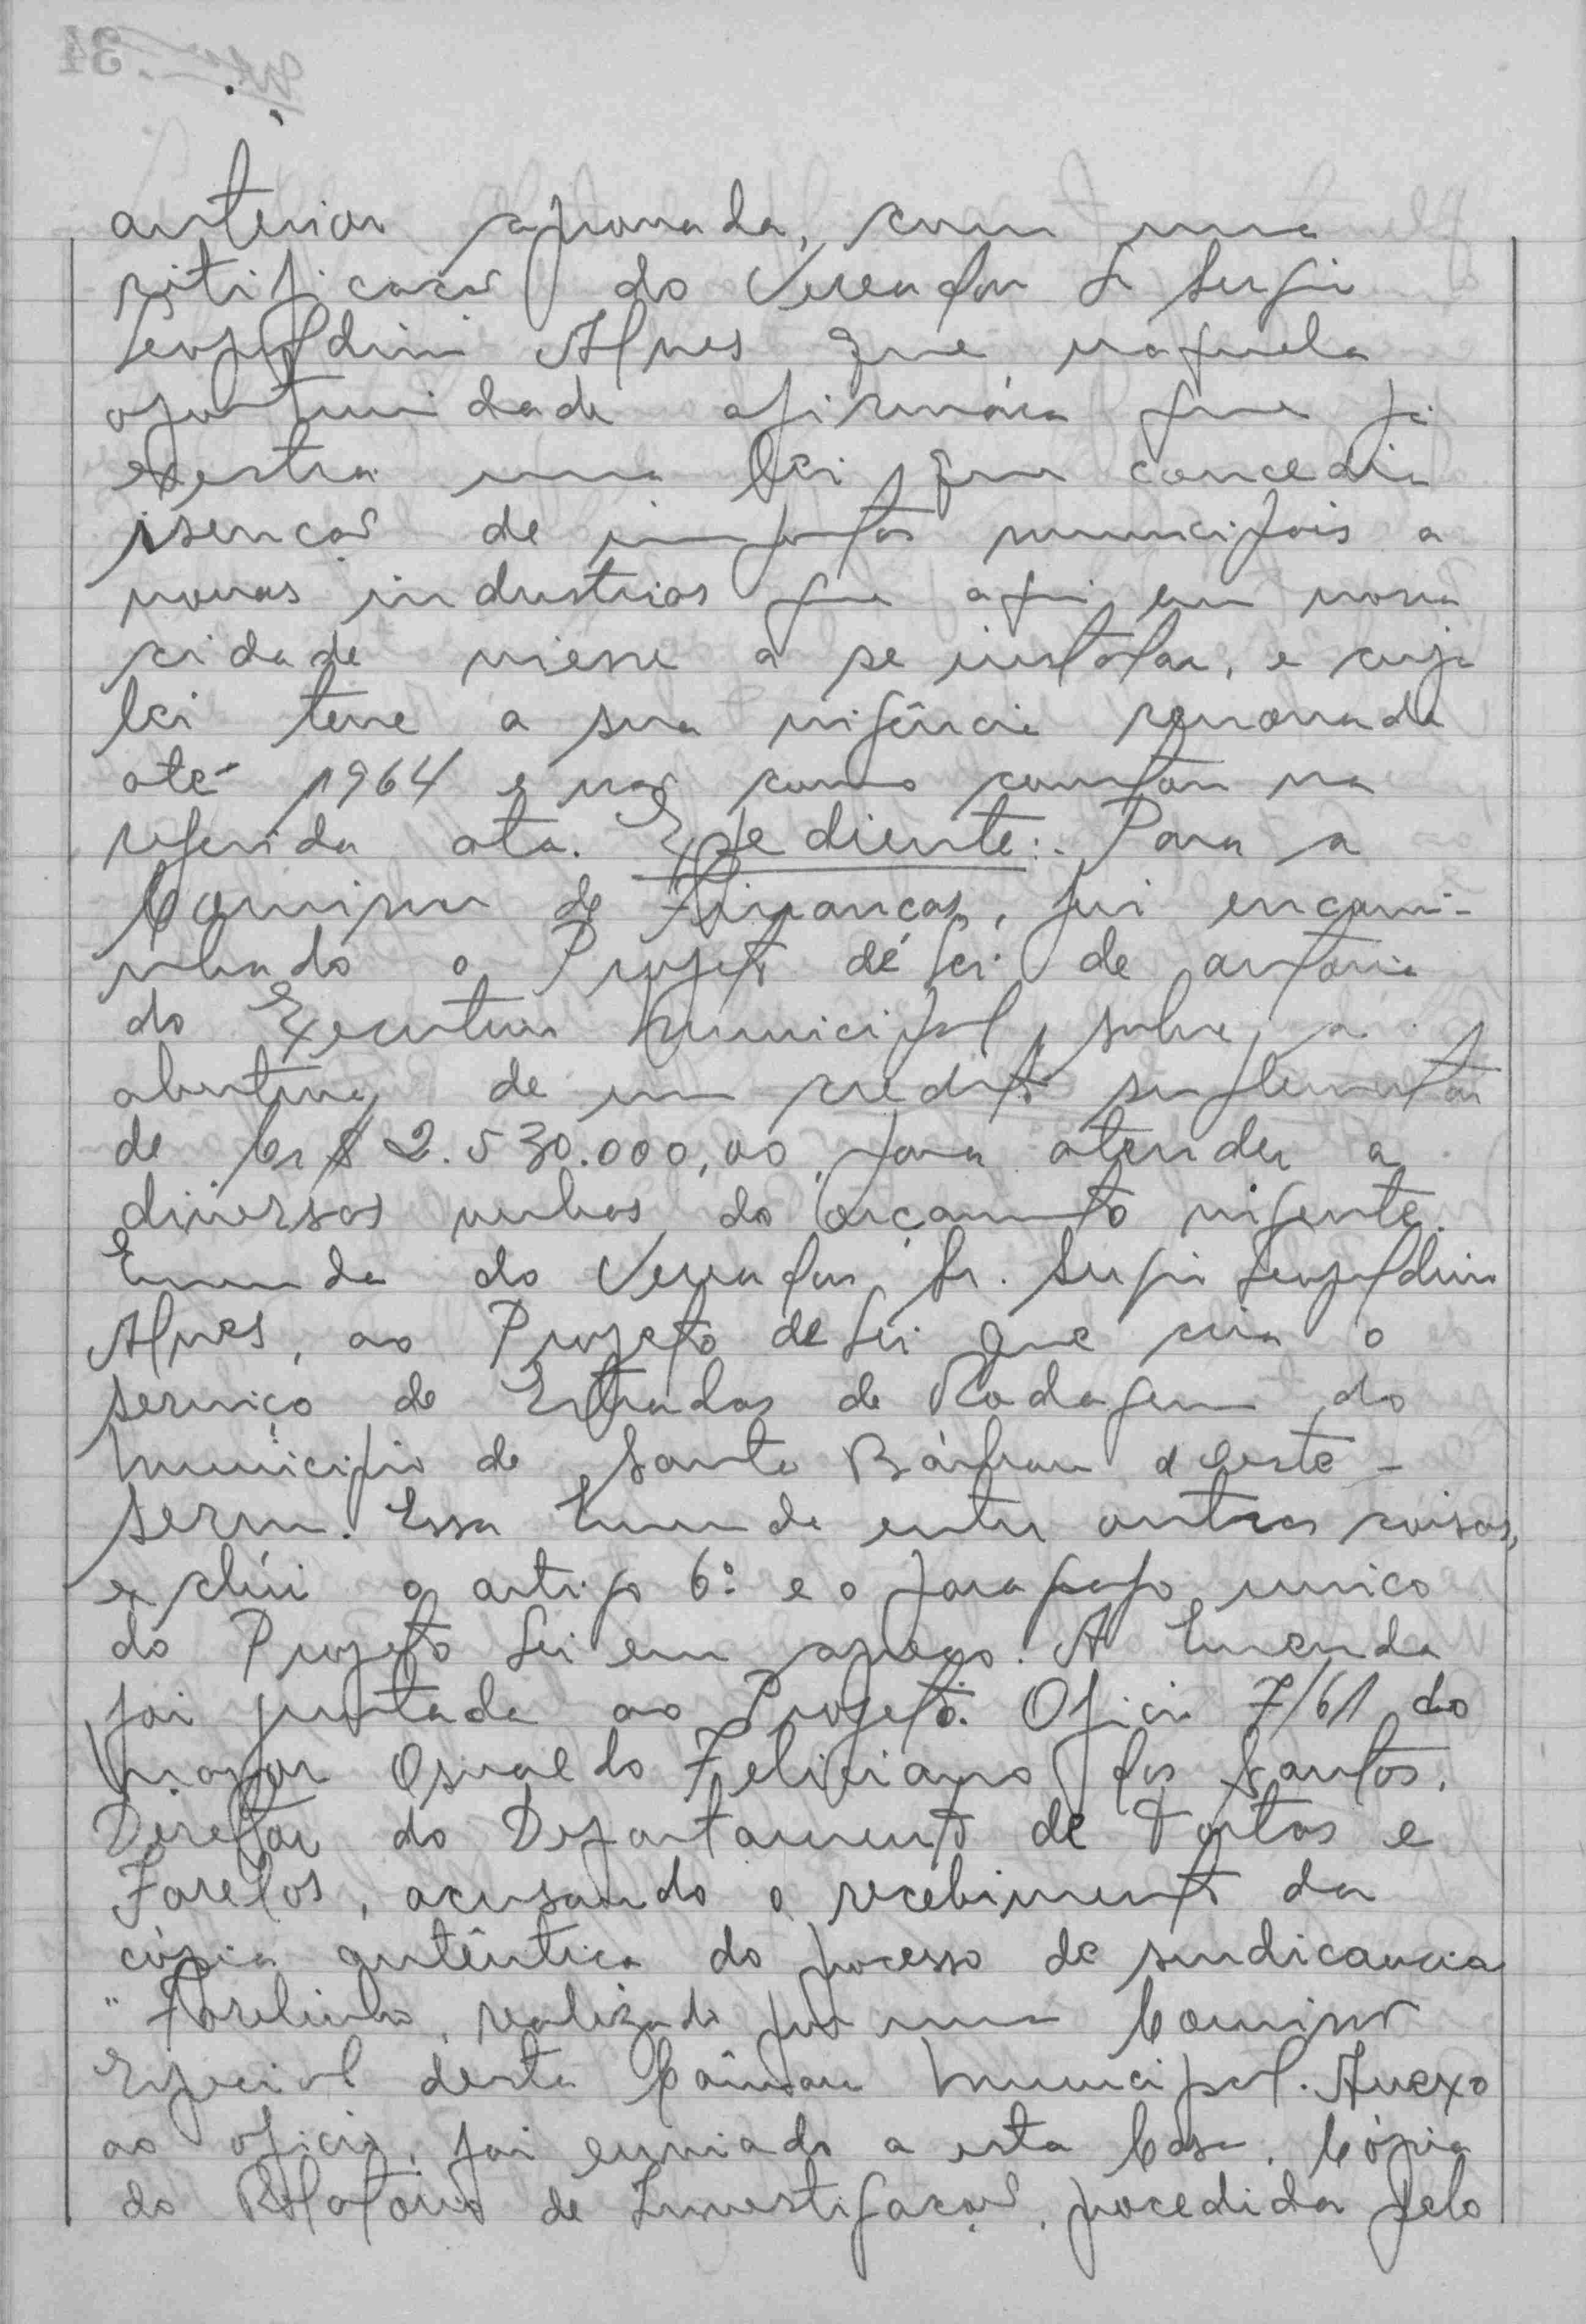 anterior aprovada, com uma
retificação do Vereador Sr Sergio
Leopoldino Alves que naquela
oportunidade afirmára que já
existia uma lei que concedia
isenção de impostos municipais a
novas industrias que aqui em nossa
cidade viesse a se instalar, e cuja
lei teve a sua vigência renovada
até 1964 e não como constou na
referida ata. Expediente:. Para a
Comissão de Finanças, foi encami-
nhado o Projeto de Lei de autoria
do Executivo Municipal, sobre a
abertura de um credito suplementar
de Cr$ 2.530.000,00, para atender a
diversas verbas do orçamento vigente.
Emenda do Vereador Sr. Sergio Leopoldino
Alves, ao Projeto de Lei que cria o
serviço de Estradas de Rodagem do
Municipio de Santa Bárbara d'Oeste -
Serm. Essa Emenda entre outras coisas,
exclúi o artigo 6º e o paragrafo unico
do Projeto Lei em apreço. A Emenda
foi juntada ao Projeto. Oficio 7/61 do
Major Osvaldo Feliciano dos Santos,
Diretor do Departamento de Tortas e
Farelos, acusando o recebimento da
cópia autêntica do processo de sindicancia
"Farelinho, realizado por uma Comissão
Especial desta Câmara Municipal. Anexo
ao oficio, foi enviado a esta Casa, Cópia
do Relatório de Investigação, procedida pelo